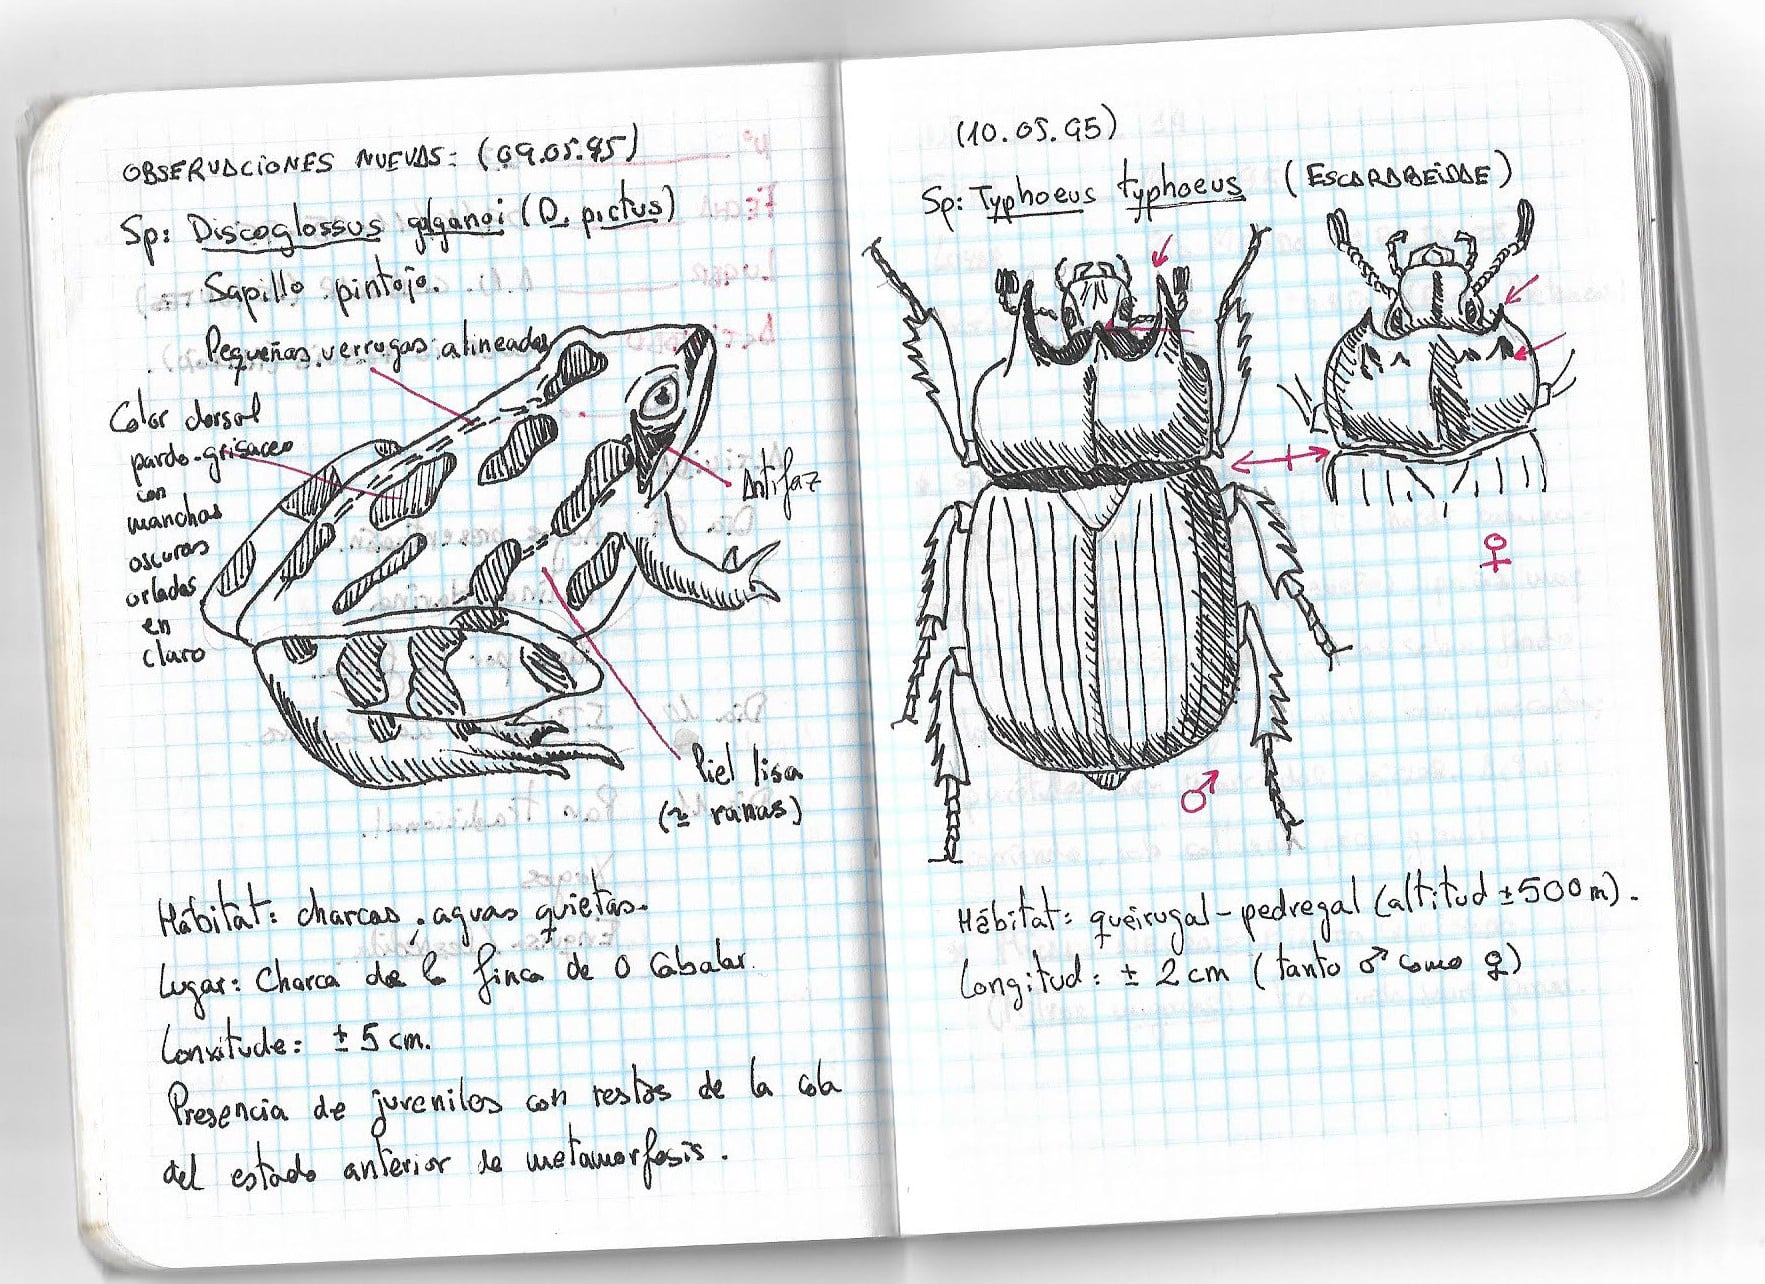 OBSERVACIONES NUEVAS: (09.05.95)
Sp: Discoglossus galganoi (D. pictus)
Sapillo pintojo.
Pequeñas verrugas alineadas
Color dorsal
pardo-grisaceo
con
manchas
oscuras
orladas
en
claro
Antifaz
Piel lisa
(≃ ranas)
Hábitat: charcas, aguas quietas.
Lugar: Charca de la finca de O Cabalar.
Lonxitude: ± 5 cm.
Presencia de juveniles con restos de la cola
del estado anterior de metamorfosis.
(10.05.95)
Sp: Typhoeus typhoeus (ESCARABEIDAE)
♀
♂
Hábitat: queirugal-pedregal (altitud ± 500 m).
Longitud: ± 2 cm (tanto ♂ como ♀)